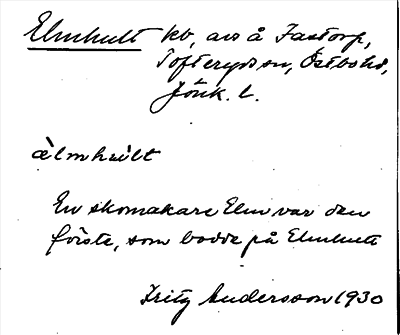 Elmhult kb, avs å Fastorp,
Tofteryds sn, Östbo hd,
Jönk. l.
àlmhùlt
En skomakare Elm var den
förste, som bodde på Elmhult
Fritz Andersson 1930